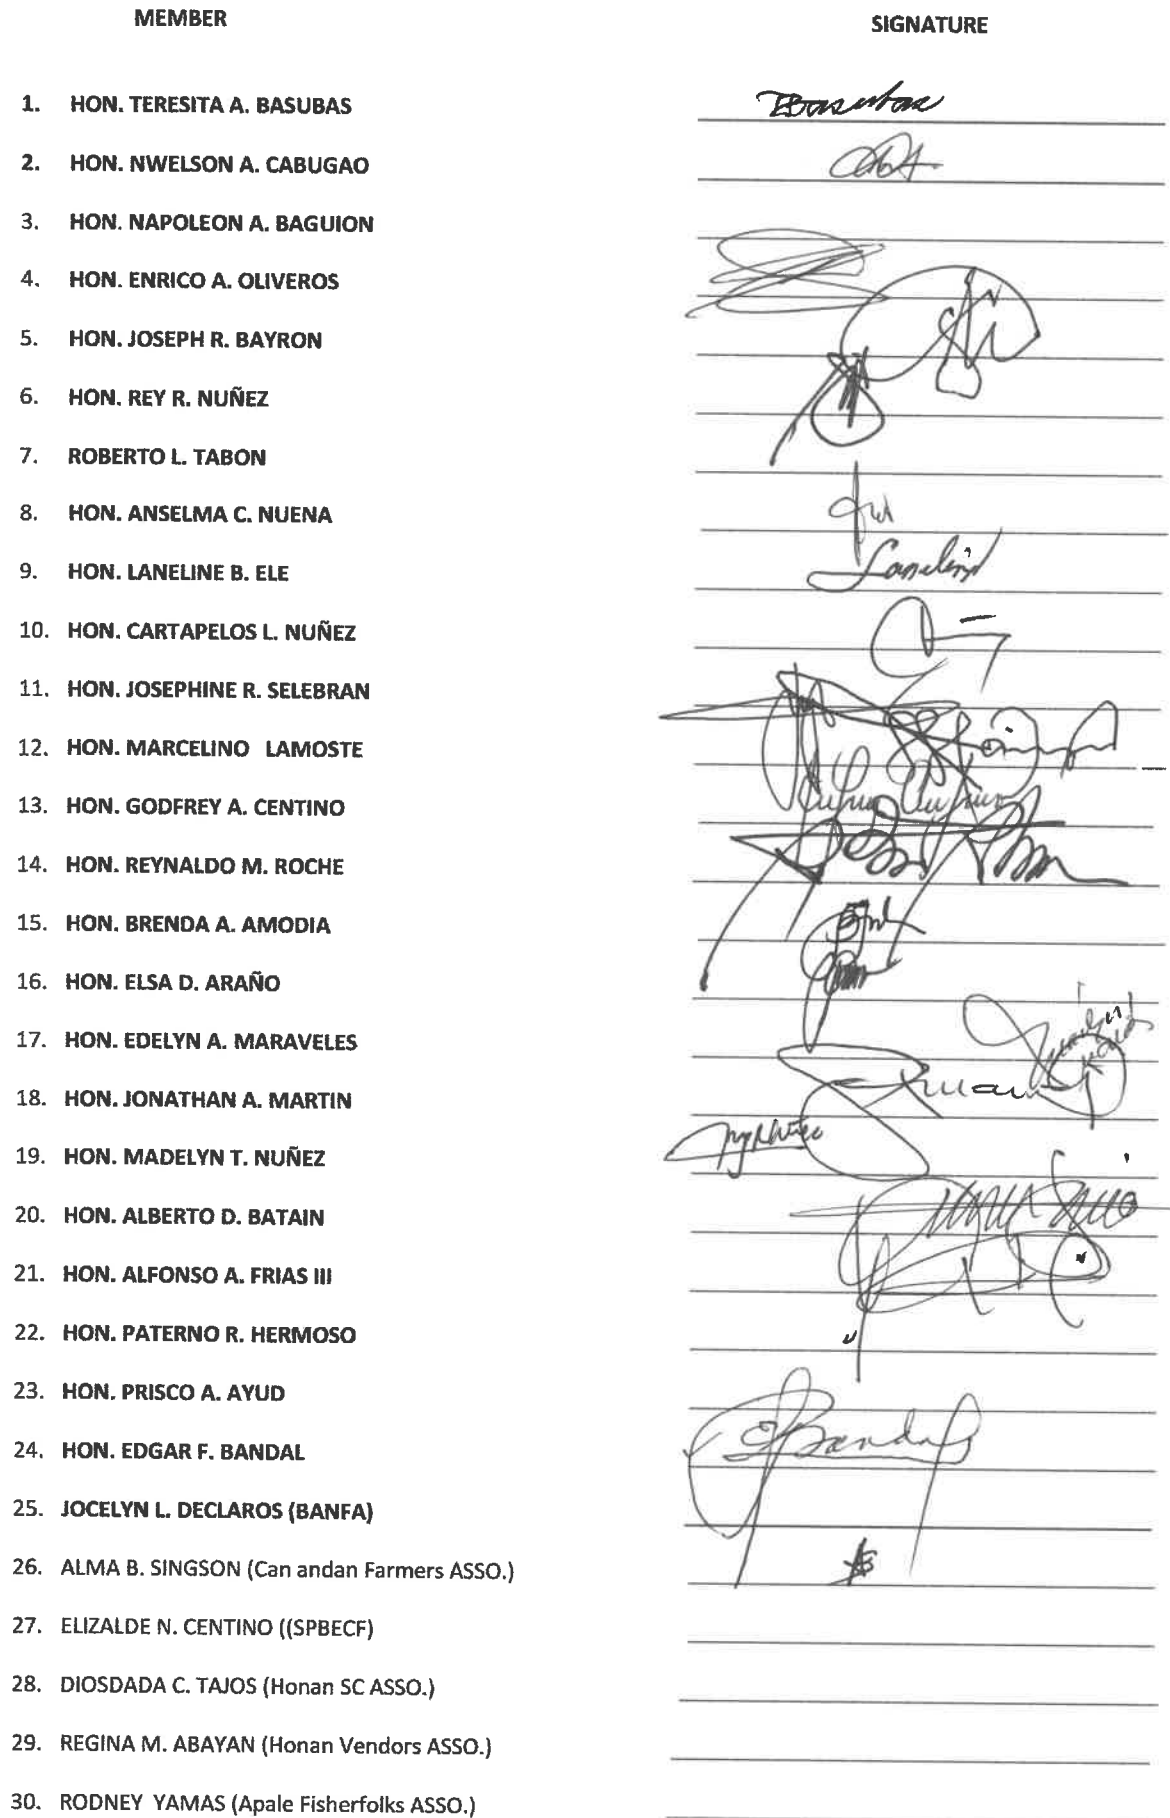 MEMBER SIGNATURE
1. HON. TERESITA A. BASUBAS
2. HON. NWELSON A. CABUGAO
3. HON. NAPOLEON A. BAGUION
4. HON. ENRICO A. OLIVEROS
5. HON. JOSEPH R. BAYRON
6. HON. REY R. NUÑEZ
7. ROBERTO L. TABON
8. HON. ANSELMA C. NUENA
9. HON. LANELINE B. ELE
10. HON. CARTAPELOS L. NUÑEZ
11. HON. JOSEPHINE R. SELEBRAN
12. HON. MARCELINO LAMOSTE
13. HON. GODFREY A. CENTINO
14. HON. REYNALDO M. ROCHE
15. HON. BRENDA A. AMODIA
16. HON. ELSA D. ARAÑO
17. HON. EDELYN A. MARAVELES
18. HON. JONATHAN A. MARTIN
19. HON. MADELYN T. NUÑEZ
20. HON. ALBERTO D. BATAIN
21. HON. ALFONSO A. FRIAS III
22. HON. PATERNO R. HERMOSO
23. HON. PRISCO A. AYUD
24. HON. EDGAR F. BANDAL
25. JOCELYN L. DECLAROS (BANFA)
26. ALMA B. SINGSON (Can andan Farmers ASSO.)
27. ELIZALDE N. CENTINO ((SPBECF)
28. DIOSDADA C. TAJOS (Honan SC ASSO.)
29. REGINA M. ABAYAN (Honan Vendors ASSO.)
30. RODNEY YAMAS (Apale Fisherfolks ASSO.)